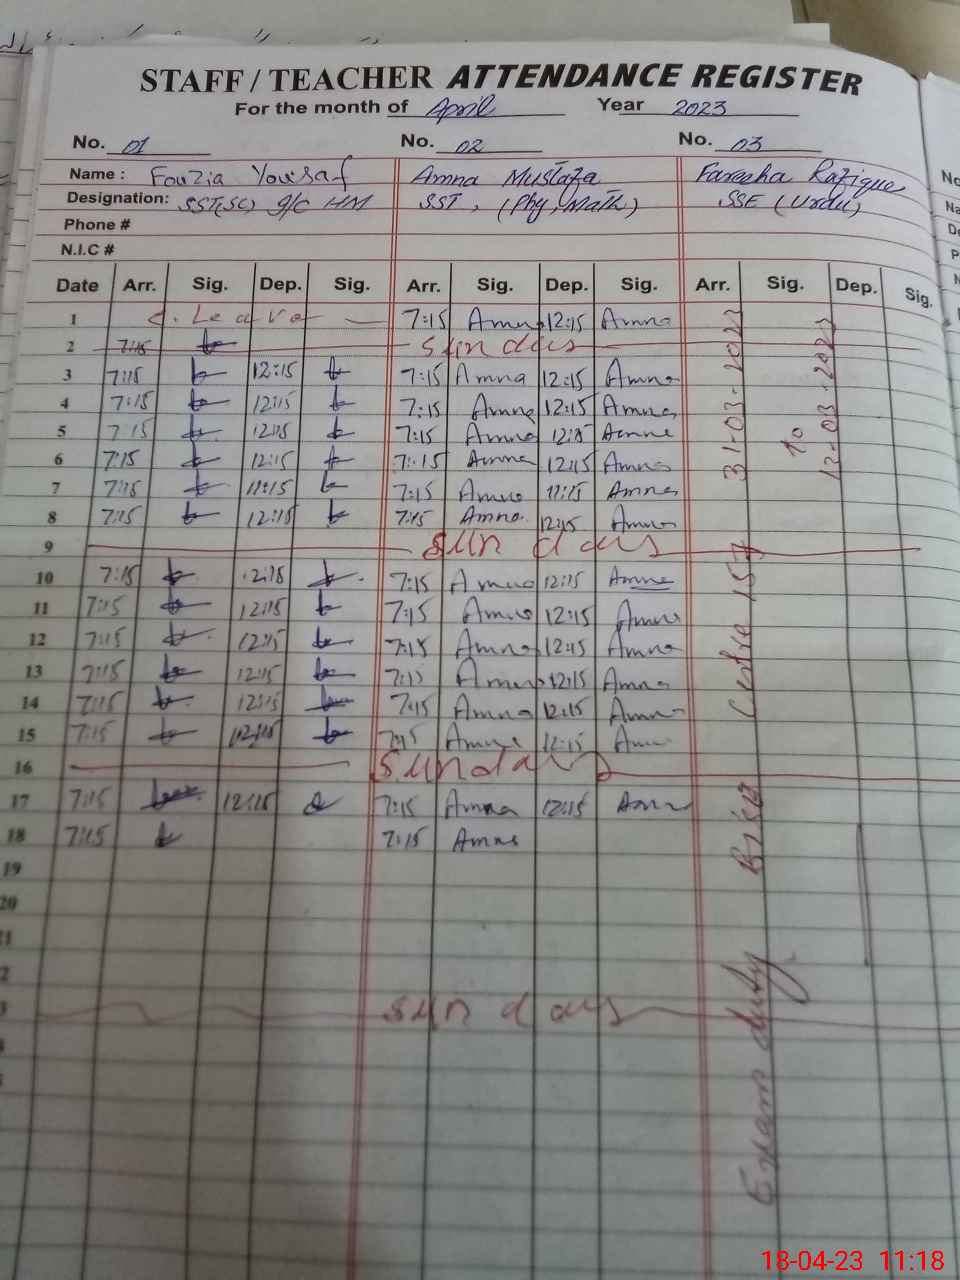 STAFF / TEACHER ATTENDANCE REGISTER
For the month of April Year 2023
No. 01 No. 02 No. 03
Name : Fouzia Yousaf Amna Mustafa Fareeha Rafique
Designation: SST(SC) I/C HM SST, (Phy, Math) SSE (Urdu)
Phone #
N.I.C #
Date Arr. Sig. Dep. Sig. Arr. Sig. Dep. Sig. Arr. Sig. Dep. Sig.
1 C. Leave 7:15 Amna 12:15 Amna
2 7:15 Sunday
3 7:15 12:15 7:15 Amna 12:15 Amna
4 7:15 12:15 7:15 Amna 12:15 Amna
5 7:15 12:15 7:15 Amna 12:15 Amna
6 7:15 12:15 7:15 Amna 12:15 Amna
7 7:15 11:15 7:15 Amna 11:15 Amna
8 7:15 12:15 7:15 Amna 12:15 Amna
9 Sunday
10 7:15 12:15 7:15 Amna 12:15 Amna
11 7:15 12:15 7:15 Amna 12:15 Amna
12 7:15 12:15 7:15 Amna 12:15 Amna
13 7:15 12:15 7:15 Amna 12:15 Amna
14 7:15 12:15 7:15 Amna 12:15 Amna
15 7:15 12:15 7:15 Amna 12:15 Amna
16 Sunday
17 7:15 12:15 7:15 Amna 12:15 Amna
18 7:15 7:15 Amna
19
20
Sunday
Exam duty Centre 157 31-03-2023
to